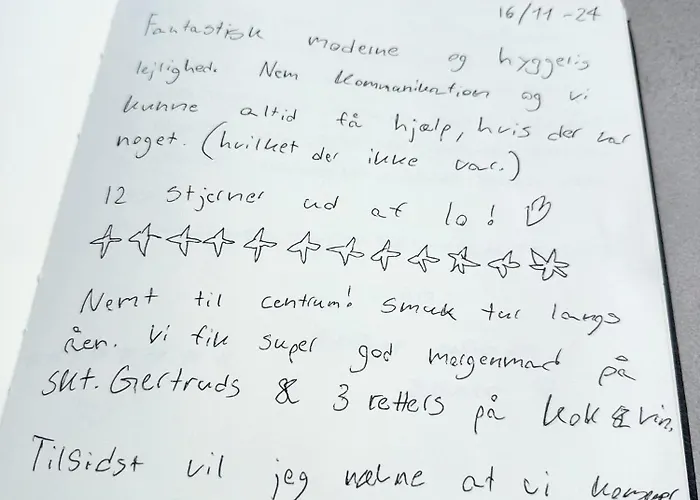 16/11-24
Fantastisk moderne og hyggelig
lejlighed. Nem kommunikation og vi
kunne altid få hjælp, hvis der var
noget. (hvilket der ikke var.)
12 stjerner ud af 10! ♡
☆☆☆☆☆☆☆☆☆☆☆☆
Nemt til centrum! smuk tur langs
åen. Vi fik super god morgenmad på
skt. Gertruds & 3 retters på kok & vin.
Tilsidst vil jeg nævne at vi kommer